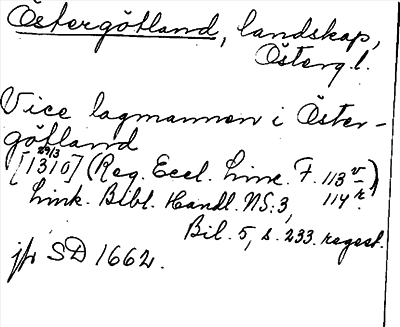 Östergötland, landskap,
Österg.l.
Vice lagmannen i Öster-
götland
29/3
[1310] (Reg. Eccl. Linc. F. 113 v
114 r.)
Link. Bibl. Handl. NS. 3,
Bil. 5, s. 233. regest.
jfr SD 1662.